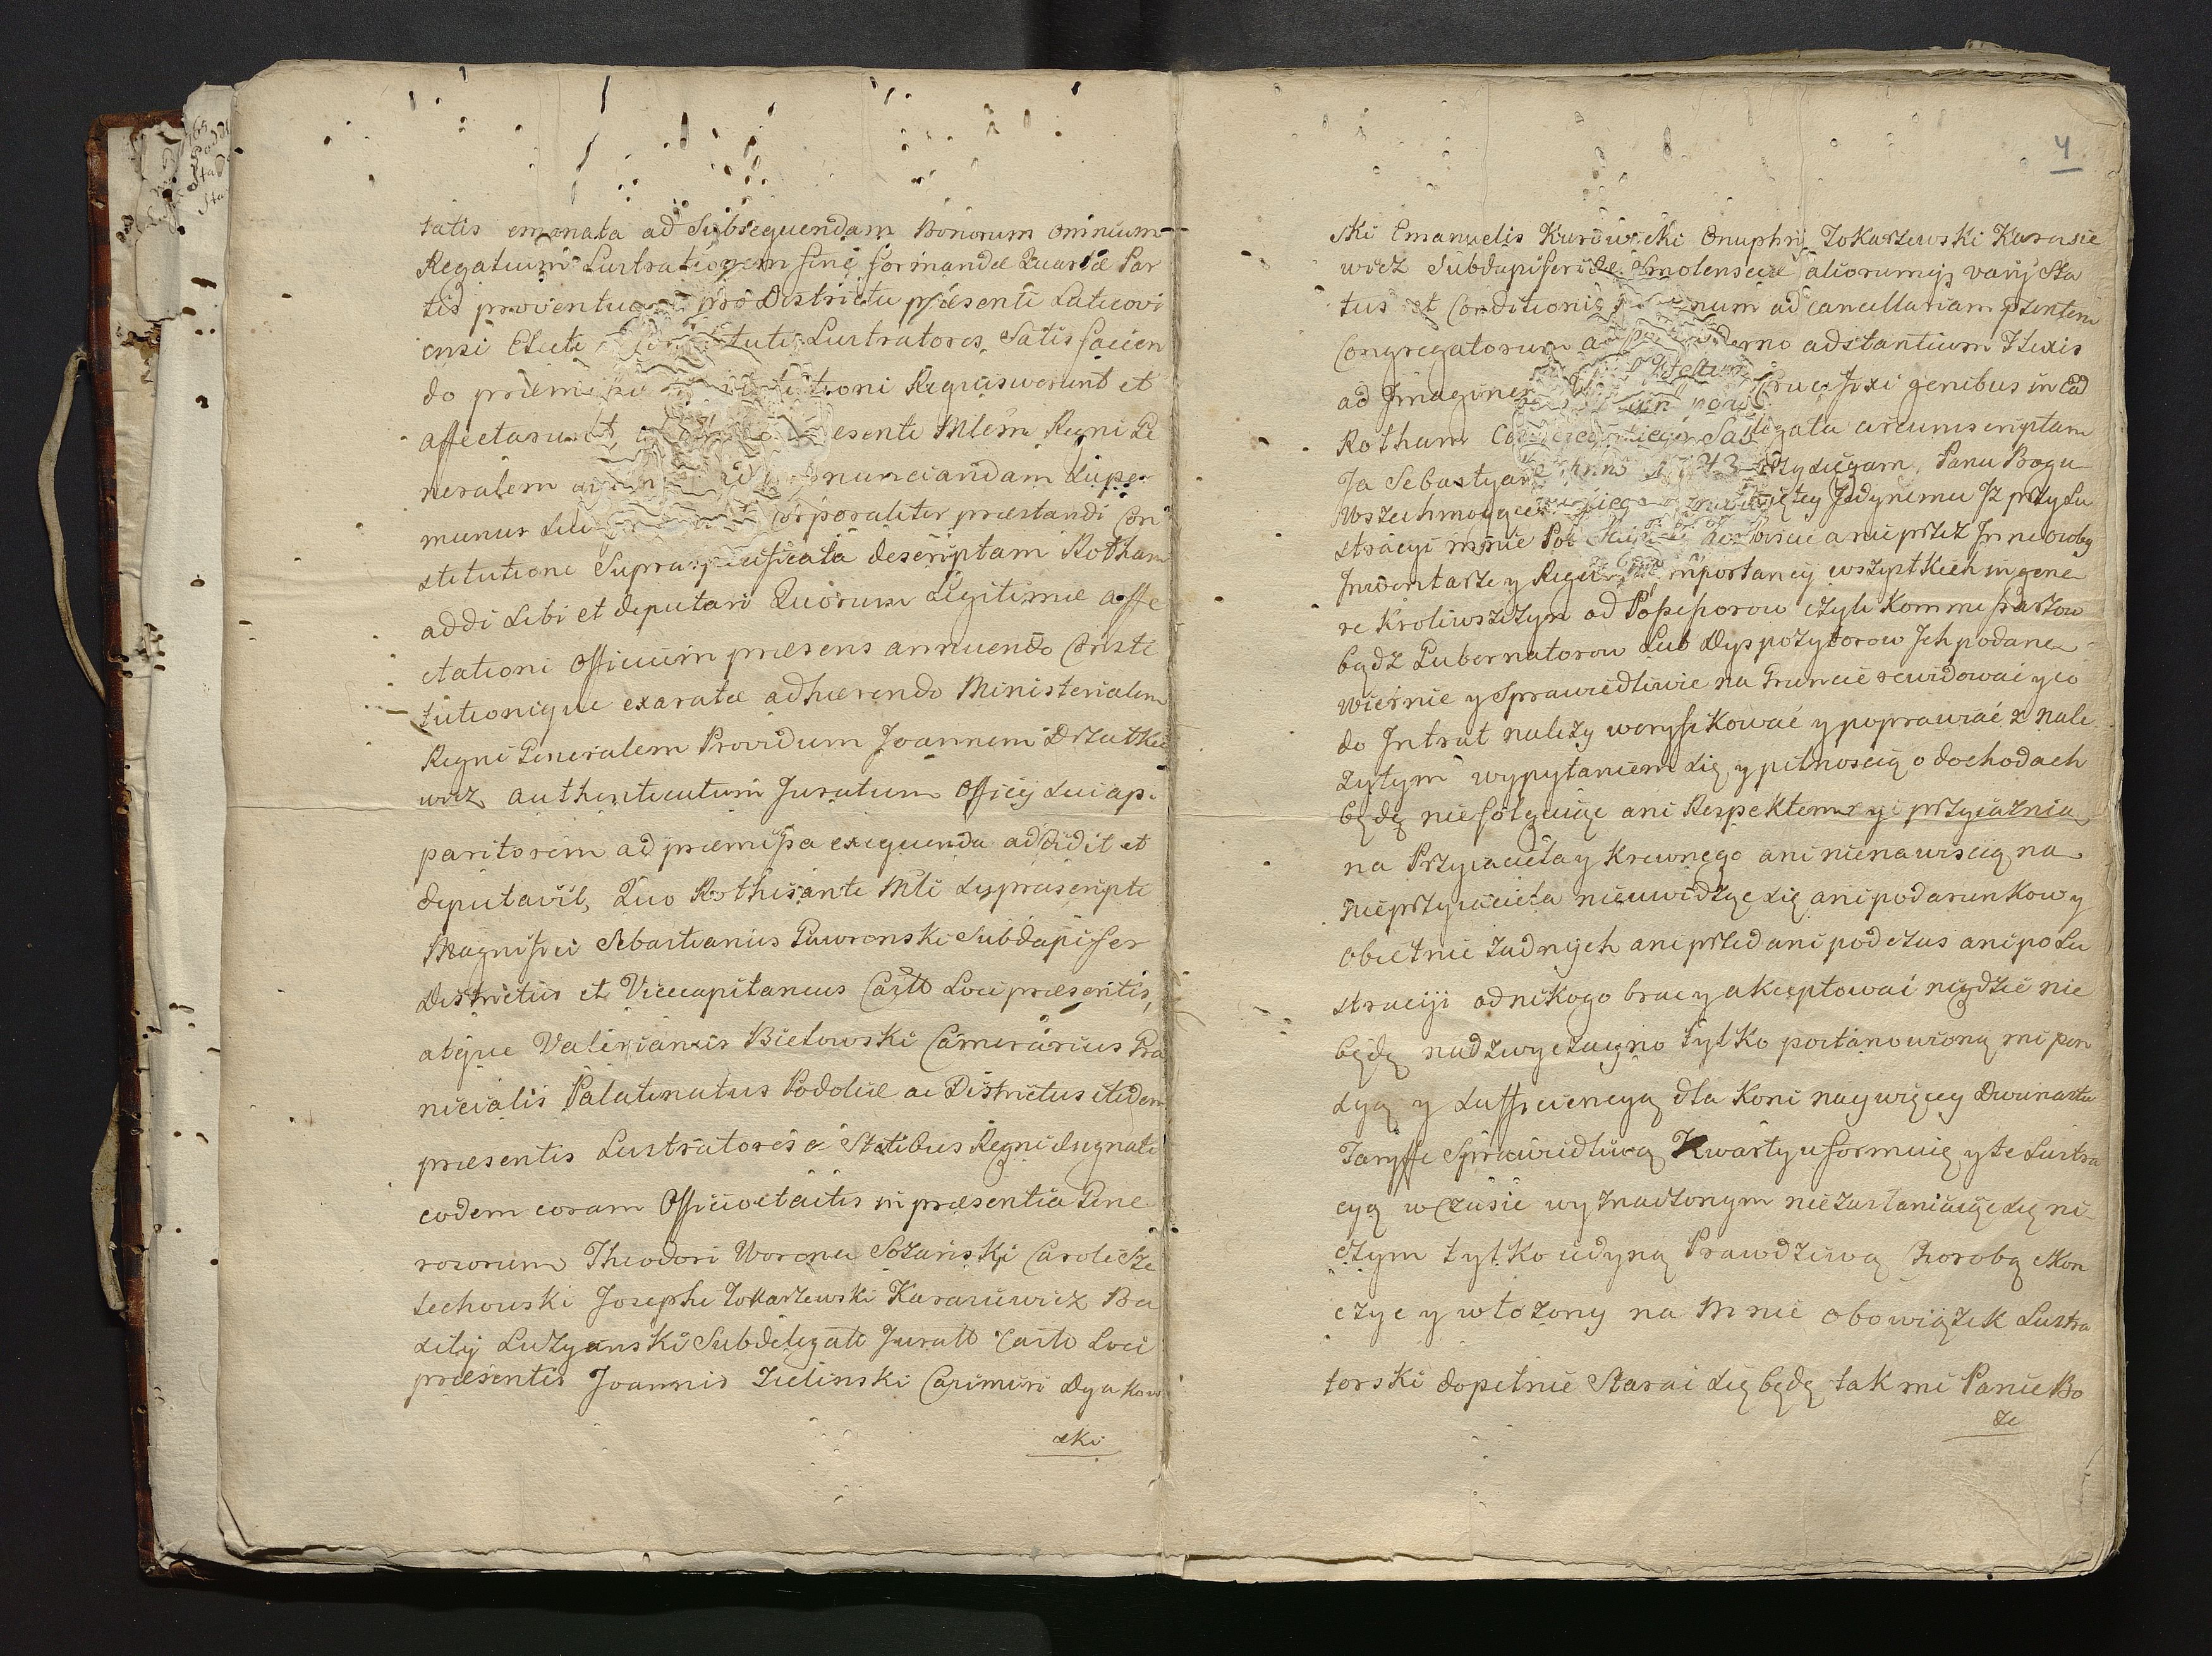 tatis emanata ad Subsequendam Bonorum omnium
Regalium Lustrationem fine formandæ Quartæ Par
tis proventuum pro Districtu præsenti Laticovi
ensi Electi Lustratores Satis facien
do præmi Requisiverunt et
affectarunt esenti Mlem Regni Ge
neralem nunciandam Super
munus corporaliter præstandi Con
stitutione Supra Specificata descriptam Rotham
addi Sibi et deputari Quorum Legitimæ affe
ctationi Officium præsens annuendo Consti
tutionique exaratæ adhærendo Ministerialem
Regni Generalem Providum Joannem
wicz authenticatum Juratum Officij Sui ap
paritorem ad præmissa exequenda addidit et
deputavit, Quo Rothisante Mli Suprascripti
Magnifici Sebastianus Gawronski Subdapifer
Districtus et Vicecapitaneus Castr Loci præsentis,
atque Valerianus Bielowski Camerarius Gra
nicialis Palatinatus Podoliæ ac Districtus itidem
præsentis Lustratores a Statibus Regni designati
eodem coram Officio et actis in præsentia Gene
rosorum Theodori Worona Caroli Sze
lechowski Josephi Tokarzewski Karasiewicz Ba
silij Subdelegati Jurati Castr Loci
præsentis Joannis Zielinski Casimiri Dyakow
ski
4
ski Emanuelis Onuphrij Tokarzewski Karasie
wicz Subdapiferidæ Smolensciæ aliorumq varij Sta
tus et Conditionis num ad Cancellariam pntem
Congregatorum derno adstantium Flexis
ad Imaginem Crucifixi genibus in Ead
Rotham legata circumscriptam
Ja Sebastyan Przysięgam Panu Bogu
Wszechmogące iętey Jedynemu Iż przy Lu
stracyi mnie a nie przez Inne osoby
Inwentarze y importancij wszystkich in gene
re Kroliwszczyn od Possessorow czyli Kommissarzow
bądz Gubernatorow Lub Dyspozytorow Jch podane
wiernie y Sprawiedliwie na Gruncie rewidować y co
do Intrat należy weryfikować y poprawiać z nale
żytym wypytaniem się y pilnoscią o dochodach
będę nie folguiąc ani Respektem y przyiaznią
na Przyiaciela y Krewnego ani nienawiscią na
nieprzyiaciela nieuwidząc się ani podarunkow y
obietnic żadnych ani przed ani podczas ani po Lu
stracyi od nikogo brac y akceptować nigdzie nie
będę nadzwyczayną tylko postanowioną mi pen
syą y Sufficiencyą dla Koni naywięcey Dwunastu
Taryffe Sprawiedliwą Kwarty uformuię y te Lustra
cyą w Czasie wyznaczonym niezastaniaiąc się ni
czym tylko iedyną Prawdziwą Chorobą skon
czyc y włożony na Mnie obowiązek Lustra
torski dopełnic Starać się będę tak mi Panie Bo
że